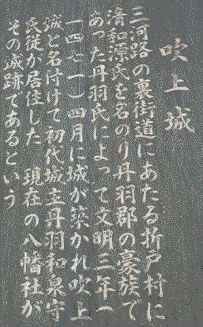 吹上城
三河路の裏街道にあたる折戸村に
清和源氏を名のり丹羽郡の豪族で
あった丹羽氏によって文明三年（
一四七一）四月に城が築かれ吹上
城と名付けて初代城主丹羽和泉守
氏従が居住した 現在の八幡社が
その城跡であるという